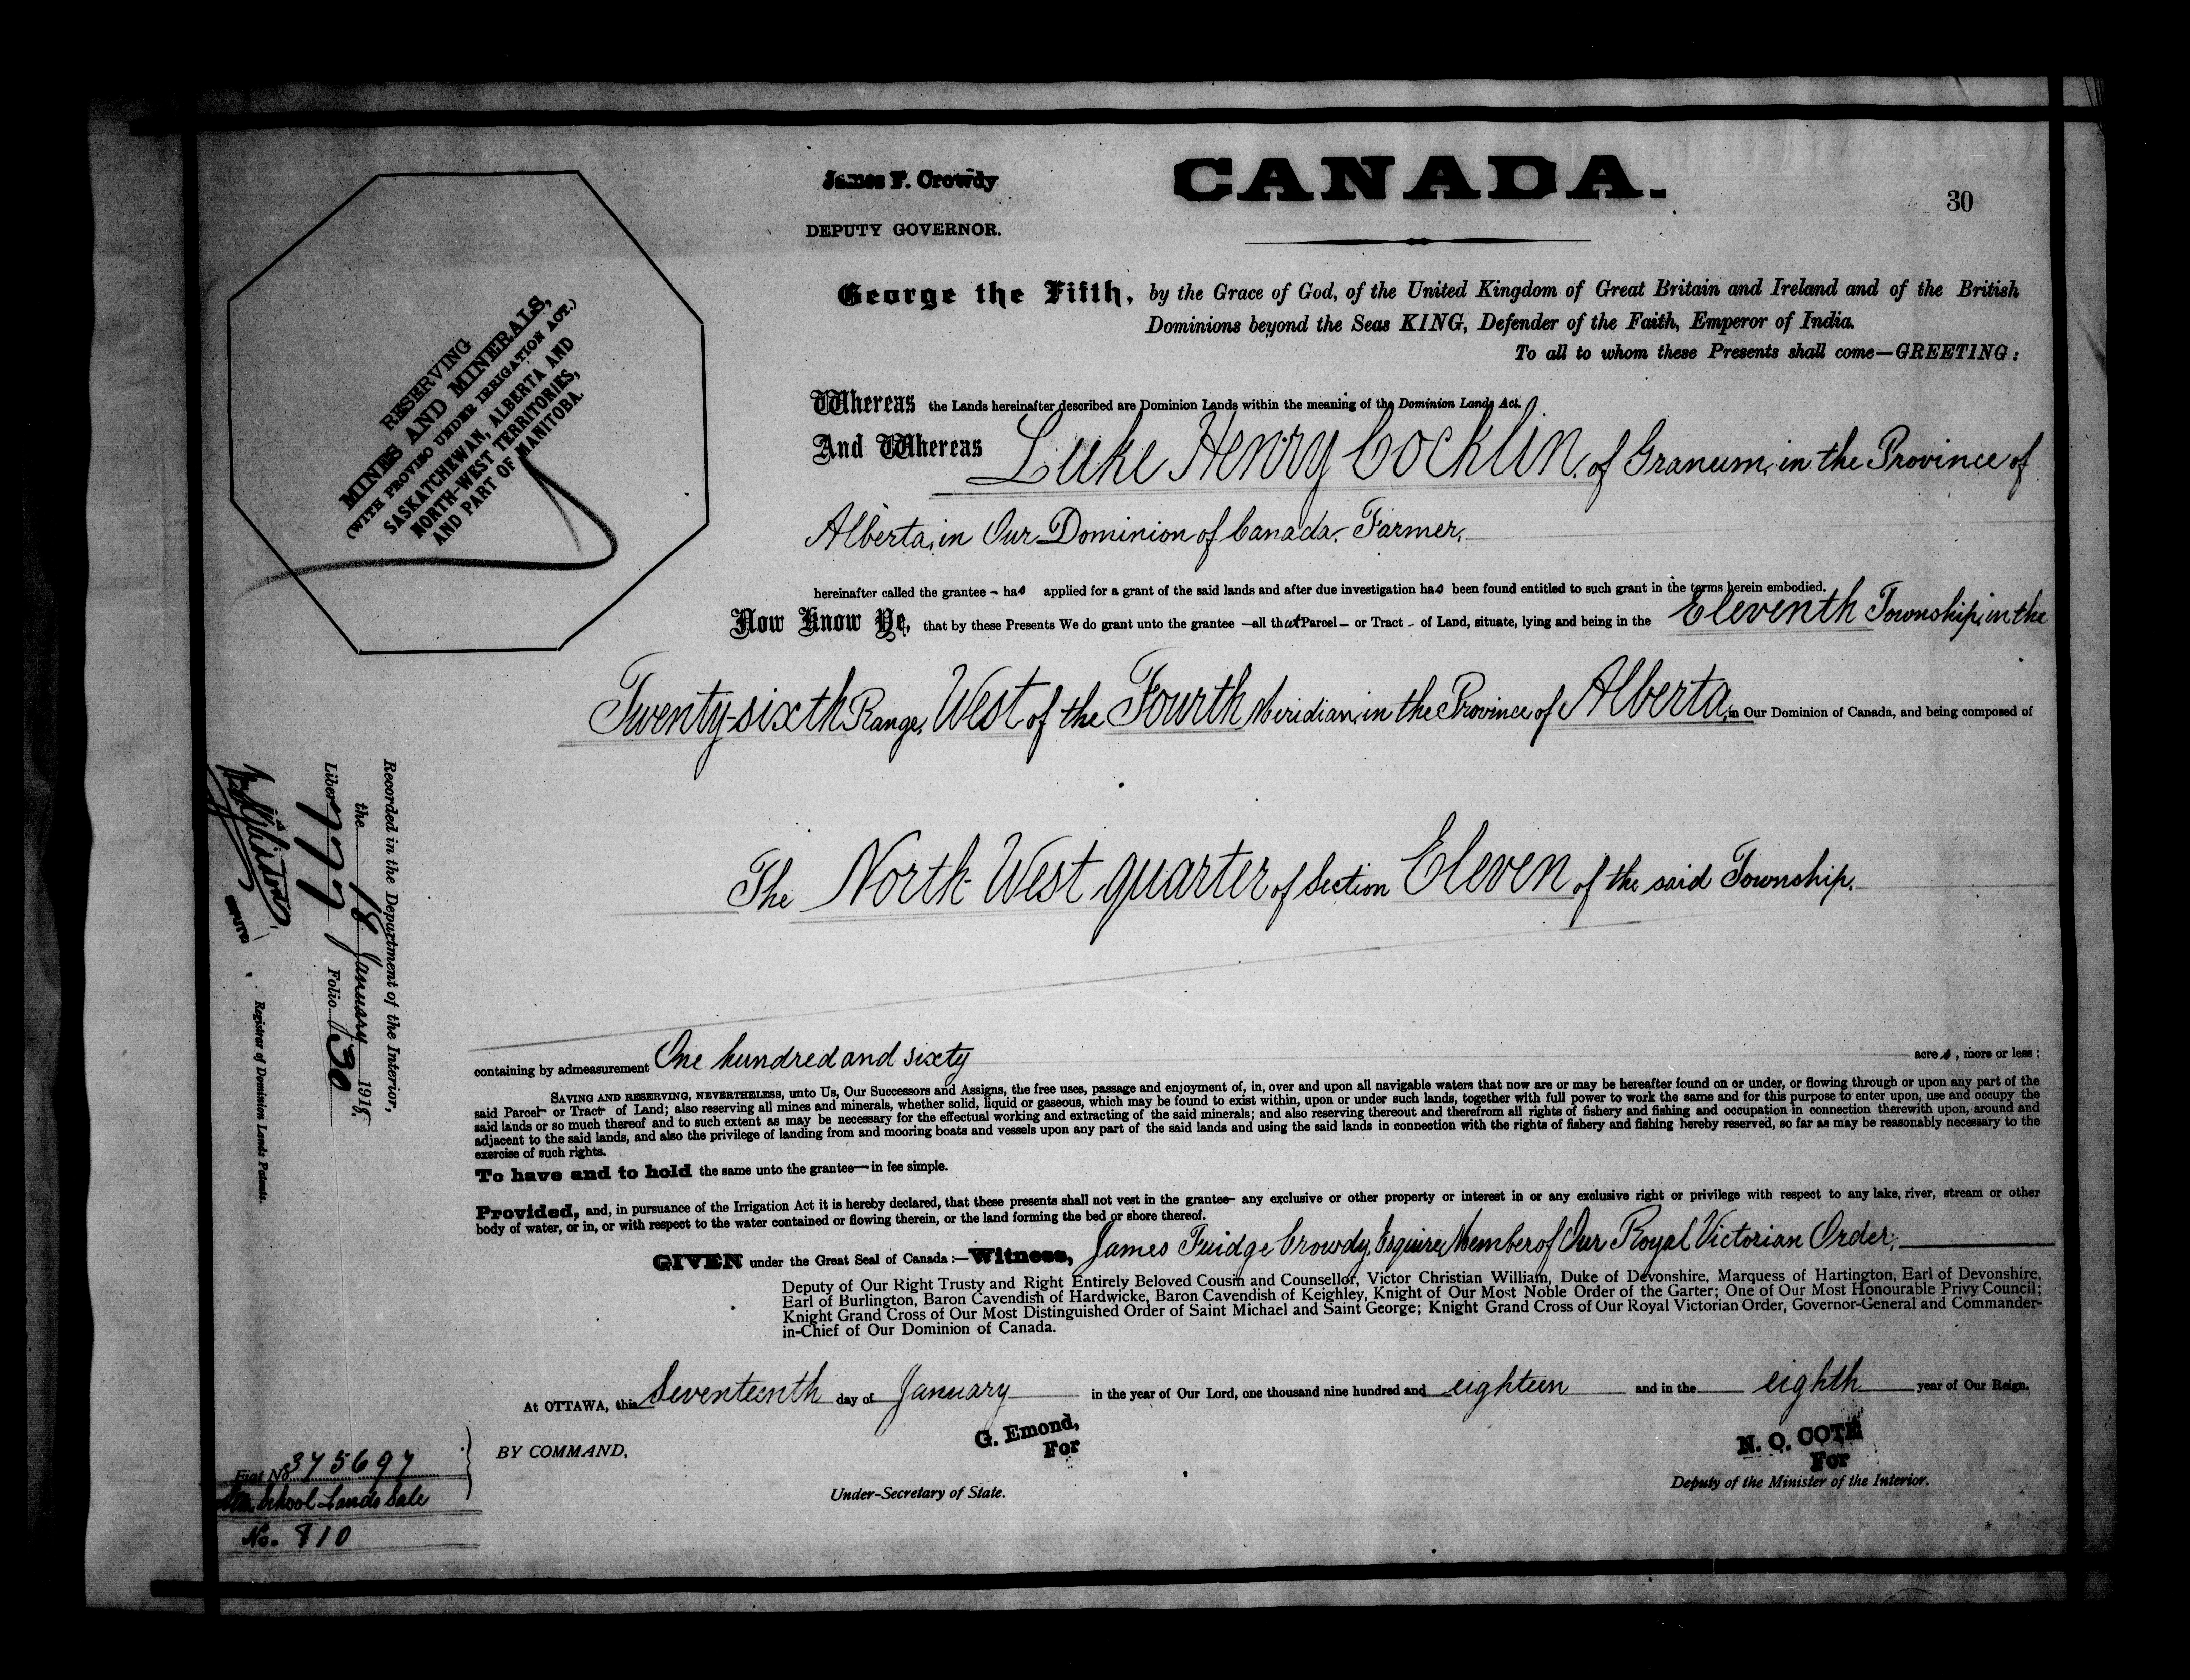 James F. Crowdy
DEPUTY GOVERNOR.
CANADA.
30
RESERVING
MINES AND MINERALS,
(WITH PROVISO UNDER IRRIGATION ACT.)
SASKATCHEWAN, ALBERTA AND
NORTH-WEST TERRITORIES,
AND PART OF MANITOBA.
George the Fifth, by the Grace of God, of the United Kingdom of Great Britain and Ireland and of the British
Dominions beyond the Seas KING, Defender of the Faith, Emperor of India.
To all to whom these Presents shall come—GREETING:
Whereas the Lands hereinafter described are Dominion Lands within the meaning of the Dominion Lands Act.
And Whereas Luke Henry Cocklin, of Granum, in the Province of
Alberta, in Our Dominion of Canada. Farmer,
hereinafter called the grantee – has applied for a grant of the said lands and after due investigation has been found entitled to such grant in the terms herein embodied.
Now Know Ye, that by these Presents We do grant unto the grantee —all that Parcel – or Tract – of Land, situate, lying and being in the Eleventh Township, in the
Twenty-sixth Range, West of the Fourth Meridian, in the Province of Alberta, in Our Dominion of Canada, and being composed of
The North-West quarter of Section Eleven of the said Township.
containing by admeasurement One hundred and sixty acres, more or less:
SAVING AND RESERVING, NEVERTHELESS, unto Us, Our Successors and Assigns, the free uses, passage and enjoyment of, in, over and upon all navigable waters that now are or may be hereafter found on or under, or flowing through or upon any part of the
said Parcel– or Tract– of Land; also reserving all mines and minerals, whether solid, liquid or gaseous, which may be found to exist within, upon or under such lands, together with full power to work the same and for this purpose to enter upon, use and occupy the
said lands or so much thereof and to such extent as may be necessary for the effectual working and extracting of the said minerals; and also reserving thereout and therefrom all rights of fishery and fishing and occupation in connection therewith upon, around and
adjacent to the said lands, and also the privilege of landing from and mooring boats and vessels upon any part of the said lands and using the said lands in connection with the rights of fishery and fishing hereby reserved, so far as may be reasonably necessary to the
exercise of such rights.
To have and to hold the same unto the grantee— in fee simple.
Provided, and, in pursuance of the Irrigation Act it is hereby declared, that these presents shall not vest in the grantee– any exclusive or other property or interest in or any exclusive right or privilege with respect to any lake, river, stream or other
body of water, or in, or with respect to the water contained or flowing therein, or the land forming the bed or shore thereof.
GIVEN under the Great Seal of Canada:—Witness, James Fuidge Crowdy, Esquire, Member of Our Royal Victorian Order,
Deputy of Our Right Trusty and Right Entirely Beloved Cousin and Counsellor, Victor Christian William, Duke of Devonshire, Marquess of Hartington, Earl of Devonshire,
Earl of Burlington, Baron Cavendish of Hardwicke, Baron Cavendish of Keighley, Knight of Our Most Noble Order of the Garter; One of Our Most Honourable Privy Council;
Knight Grand Cross of Our Most Distinguished Order of Saint Michael and Saint George; Knight Grand Cross of Our Royal Victorian Order, Governor-General and Commander-
in-Chief of Our Dominion of Canada.
At OTTAWA, this Seventeenth day of January in the year of Our Lord, one thousand nine hundred and eighteen and in the eighth year of Our Reign.
BY COMMAND,
G. Emond,
For
Under-Secretary of State.
N. O. COTE
For
Deputy of the Minister of the Interior.
Recorded in the Department of the Interior,
the 18 January 1918,
Liber 777 Folio 30
Registrar of Dominion Lands Patents.
Fiat No. 375697
School Lands Sale
No. 710